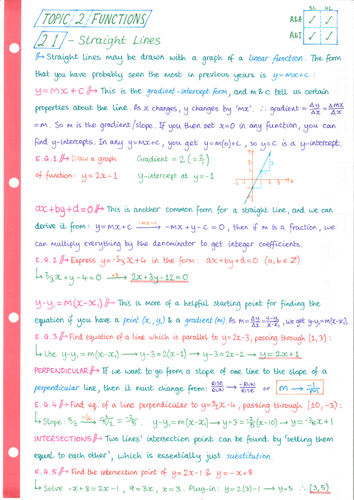 TOPIC 2 FUNCTIONS
SL HL
A&A ✓ ✓
A&I ✓ ✓
2.1 - Straight Lines
↳ Straight lines may be drawn with a graph of a linear function. The form
that you have probably seen the most in previous years is y=mx+c:
y=mx+c ↳ This is the gradient-intercept form, and m & c tell us certain
properties about the line. As x changes, y changes by 'mx'. ∴ gradient = Δy/Δx = Δmx/Δx
=m. So m is the gradient/slope. If you then set x=0 in any function, you can
find y-intercepts. In any y=mx+c, you get y=m(0)+c, so y=c is a y-intercept.
E.G.1 ↳ Draw a graph Gradient = 2
of function: y=2x-1 y-intercept at y=-1
ax+by+d=0 ↳ This is another common form for a straight line, and we can
derive it from: y=mx+c → -mx-c → -mx+y-c=0, then if m is a fraction, we
can multiply everything by the denominator to get integer coefficients.
E.G.2 ↳ Express y=-2/3x+4 in the form: ax+by+d=0 (a,b∈ℤ)
↳ 2/3x+y-4=0 → ×3 → 2x+3y-12=0
y-y₁=m(x-x₁) ↳ This is more of a helpful starting point for finding the
equation if you have a point (x₁,y₁) & a gradient (m). As m=Δy/Δx=y-y₁/x-x₁, we get y-y₁=m(x-x₁).
E.G.3 ↳ Find equation of a line which is parallel to y=2x-3, passing through (1,3):
↳ Use y-y₁=m(x-x₁) → y-3=2(x-1) → y-3=2x-2 → y=2x+1
PERPENDICULAR ↳ If we want to go from a slope of one line to the slope of a
perpendicular line, then it must change from: RISE/RUN → -RUN/RISE or m → -1/m
E.G.4 ↳ Find eq. of a line perpendicular to y=5/2x-4, passing through (10,-3):
↳ Slope: 5/2 → -1/(5/2) = -2/5. y-y₁=m(x-x₁) → y+3=-2/5(x-10) → y=-2/5x+1
INTERSECTIONS ↳ Two lines' intersection point can be found by 'setting them
equal to each other', which is essentially just substitution.
E.G.5 ↳ Find the intersection point of y=2x-1 & y=-x+8
↳ Solve -x+8=2x-1, 9=3x, x=3. Plug-in: y=2(3)-1 → y=5 ∴ (3,5)